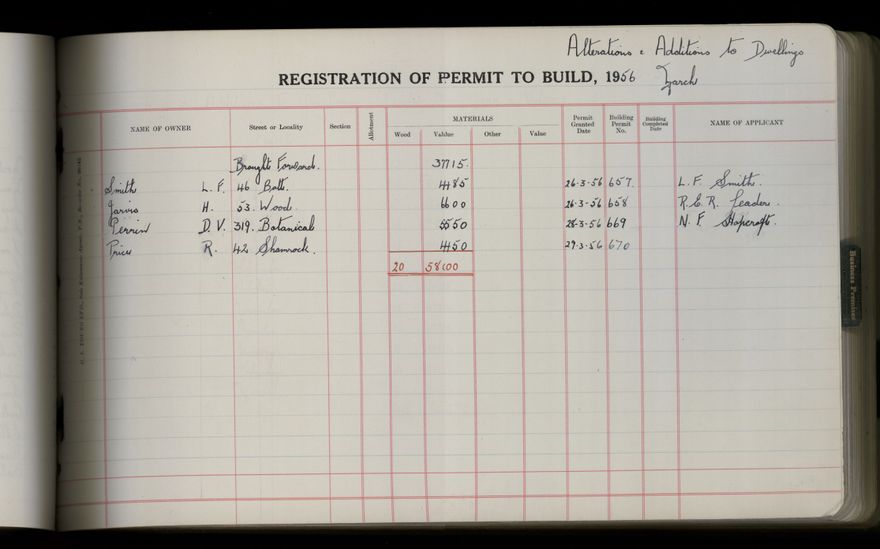 Alterations & Additions to Dwellings
REGISTRATION OF PERMIT TO BUILD, 1956 March
NAME OF OWNER Street or Locality Section Allotment MATERIALS Wood Value Other Value Permit Granted Date Building Permit No. Building Completed Date NAME OF APPLICANT
Brought Forward. 37715.
Smith L. F. 46 Batt. 4485 26-3-56 657. L. F. Smith.
Jarvis H. 53. Wood. 6600 26-3-56 658 R. E. R. Leader.
Perrin D. V. 319. Botanical 5550 28-3-56 669 N. F. Hopcroft.
Price R. 42 Shamrock. 4450 29-3-56 670
20 58800
Business Premises